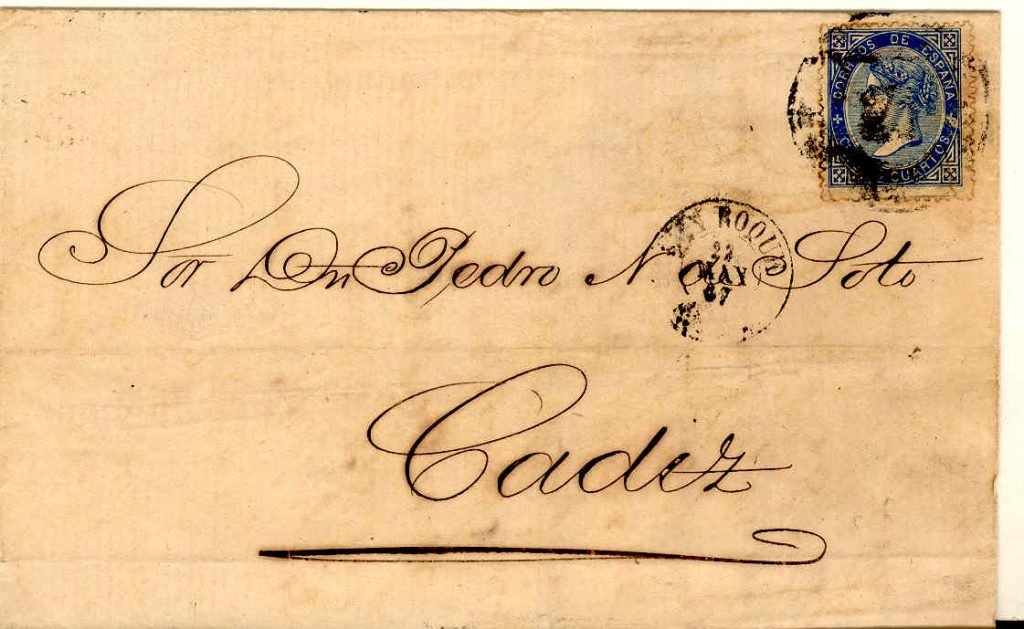 CORREOS DE ESPAÑA
CUARTOS
SAN ROQUE
MAY
67
Sor Dn Pedro N. Soto
Cadiz